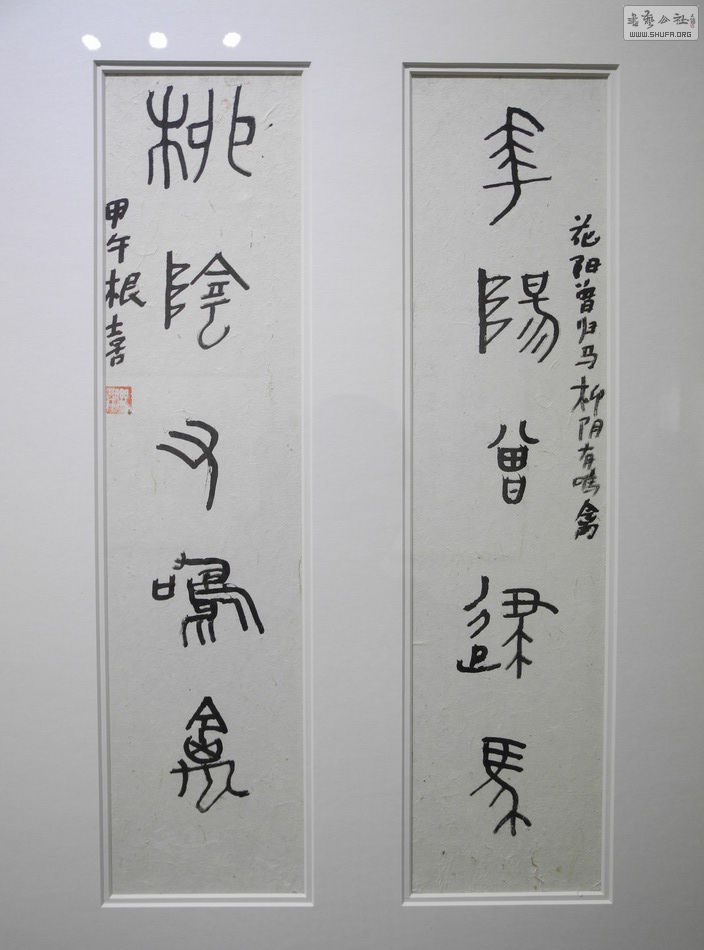 華陽曾歸馬
花阳曾归马柳阴有鸣禽
柳陰又鳴禽
甲午根喜
書藝公社
WWW.SHUFA.ORG